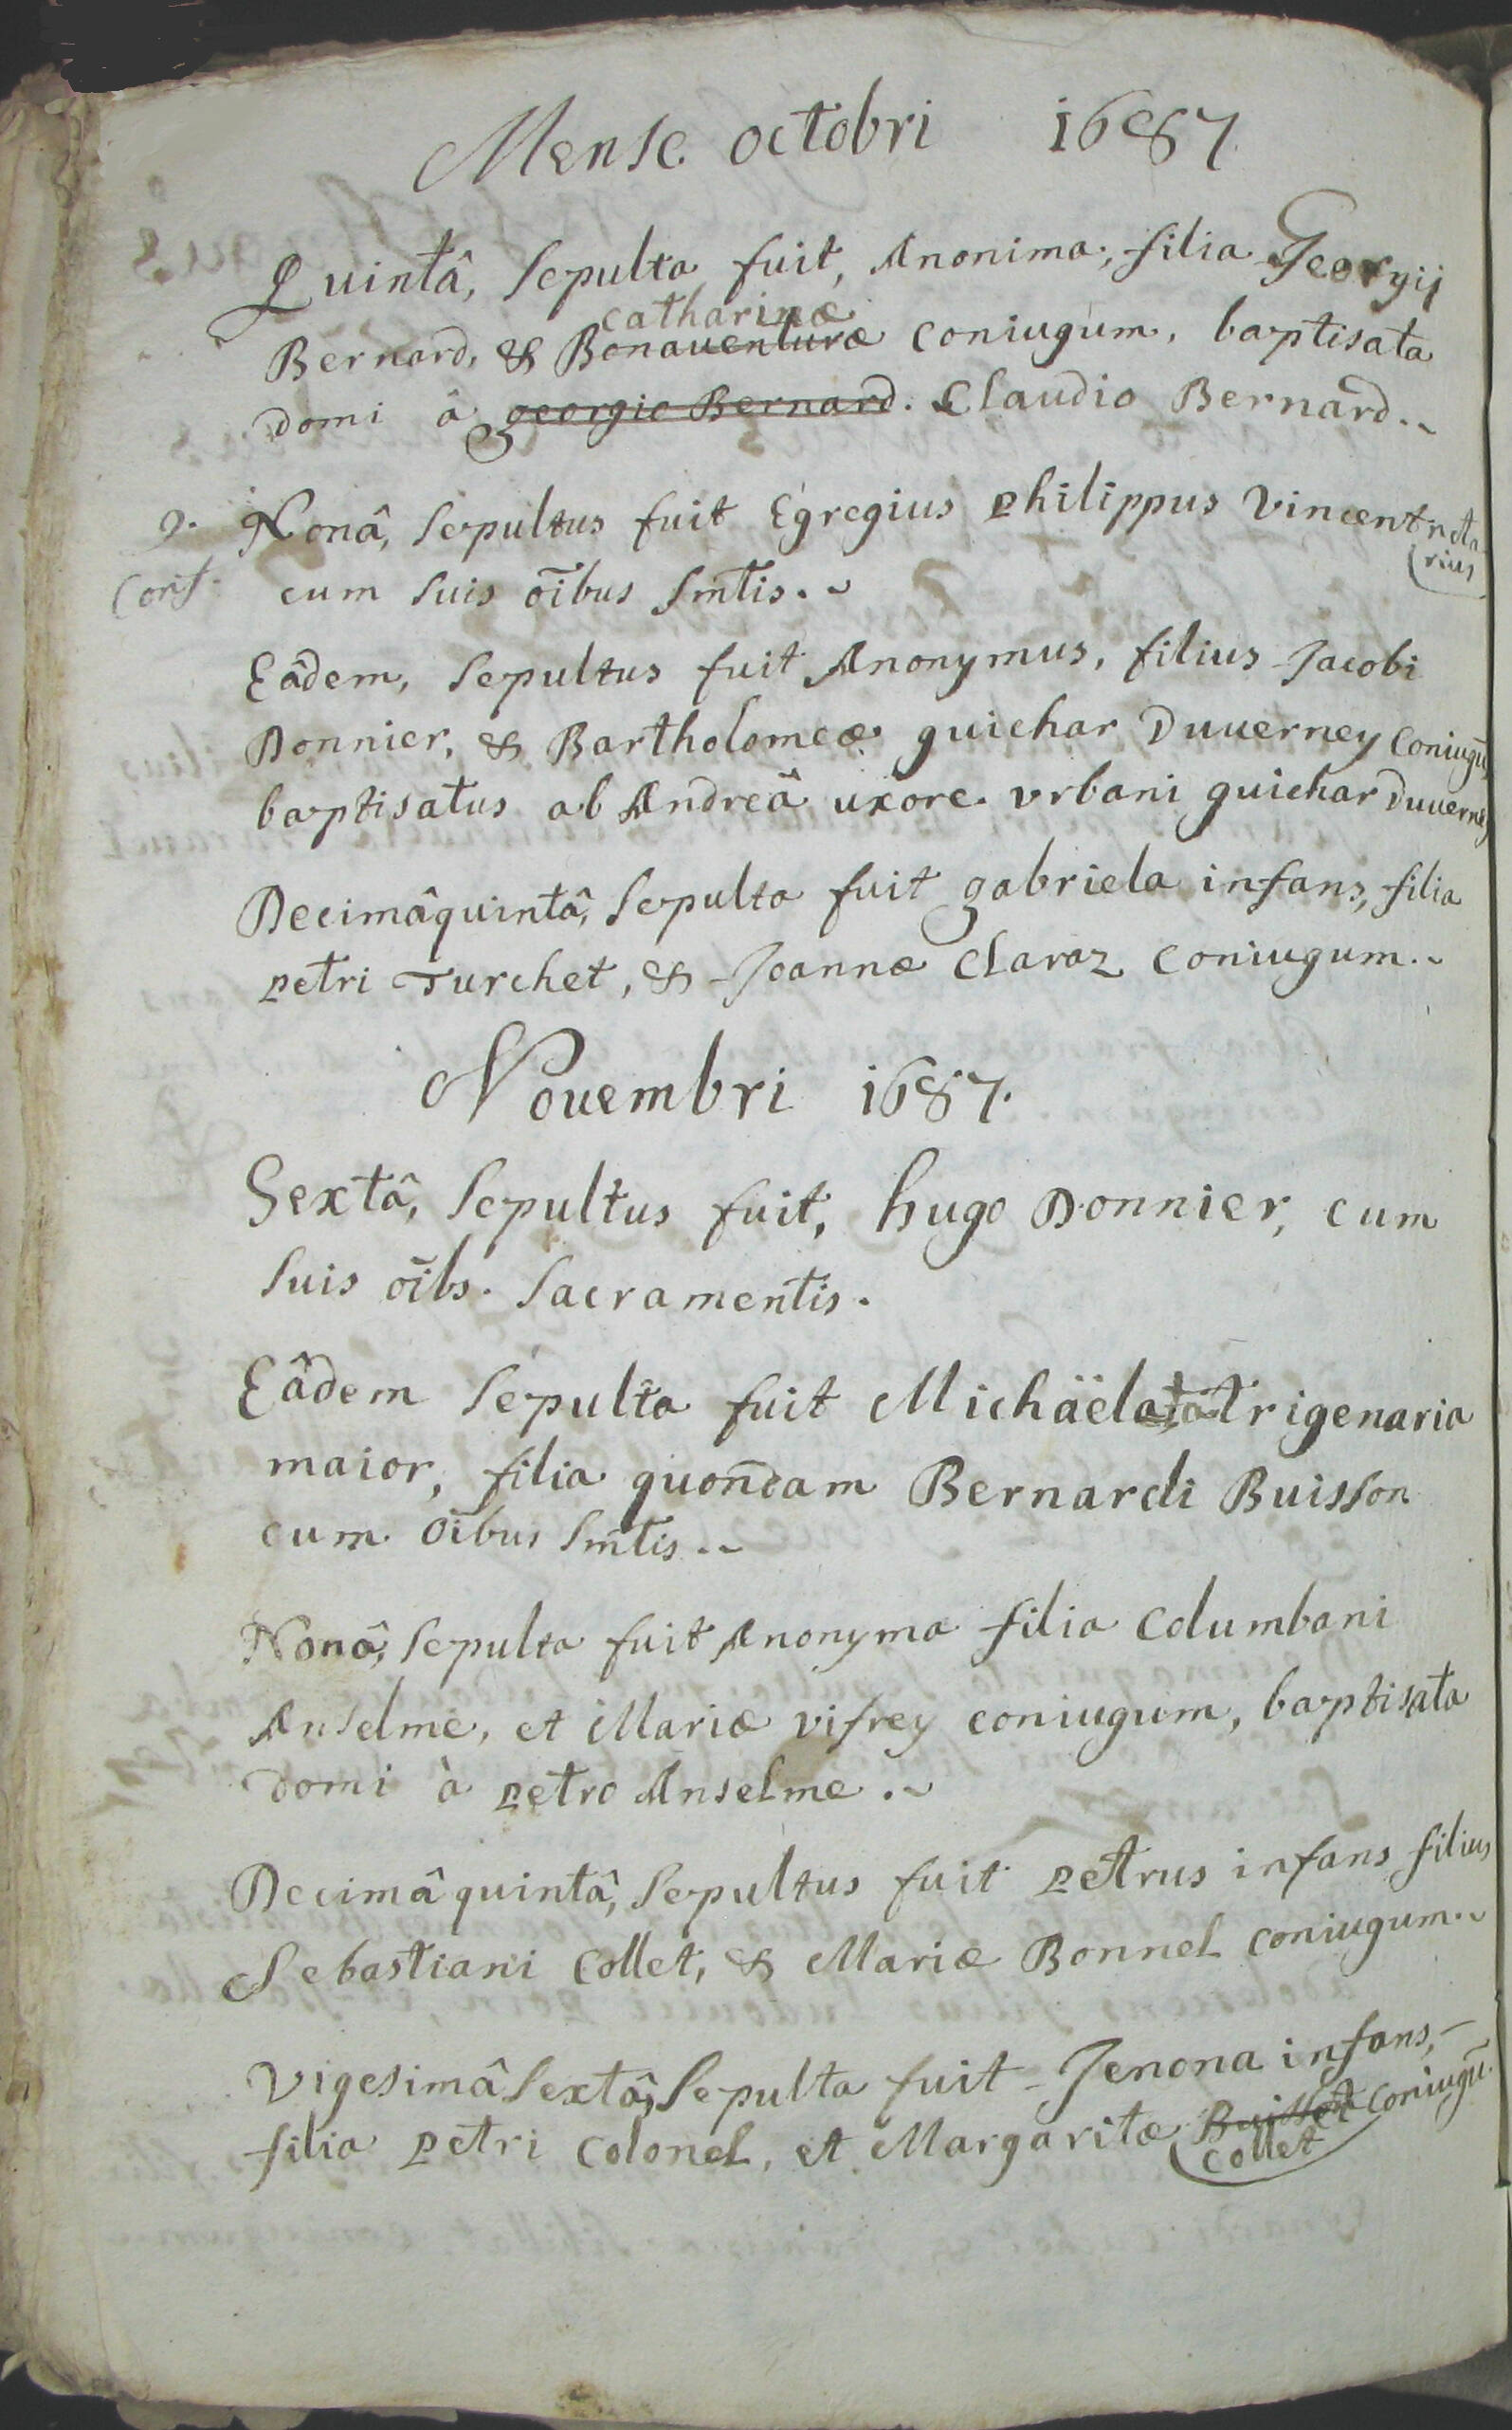 Mense octobri 1687
Quintâ, sepulta fuit, Anonima, filia Georgij
catharinæ
Bernard, & Bonauenturæ coniugum, baptisata
domi à georgio Bernard. Claudio Bernard..
9. Nonâ, sepultus fuit Egregius philippus Vincent nota
rius
Conf. cum suis oībus Smtis..
Eâdem, sepultus fuit Anonymus, filius Jacobi
Donnier, & Bartholomeæ guichar Duuerney coniugū
baptisatus ab Andreâ uxore vrbani guichar Duuerney
Decimâquintâ, sepulta fuit gabriela infans, filia
petri Turchet, & Joannæ Claraz coniugum..
Nouembri 1687.
Sextâ, sepultus fuit, hugo Donnier, cum
suis oībs. sacramentis.
Eâdem sepulta fuit Michäela trigenaria
maior, filia quondam Bernardi Buisson
cum oībus Smtis..
Nonâ, sepulta fuit Anonyma filia Columbani
Anselme, et Mariæ vifrey coniugum, baptisata
domi à petro Anselme..
Decimâ quintâ, sepultus fuit petrus infans filius
Sebastiani Collet, & Mariæ Bonnel coniugum..
Vigesimâ sextâ, sepulta fuit Jenona infans,
filia petri Colonel, et Margaritæ Buisson coniugū.
Collet